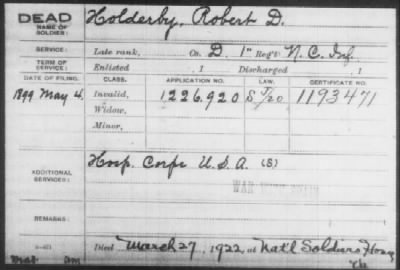 DEAD
NAME OF SOLDIER:
Holderby, Robert D.
SERVICE:
Late rank, Co. D. 1" Reg't N. C. Inf.
TERM OF SERVICE:
Enlisted , 1 Discharged , 1
DATE OF FILING. CLASS. APPLICATION NO. LAW. CERTIFICATE NO.
1899 May 4. Invalid, 1226.920 1193471
Widow,
Minor,
ADDITIONAL SERVICES:
Hosp. Corps U.S.A. (S)
WAR WITH SPAIN
REMARKS:
Died March 27, 1922, at Nat'l Soldiers Home